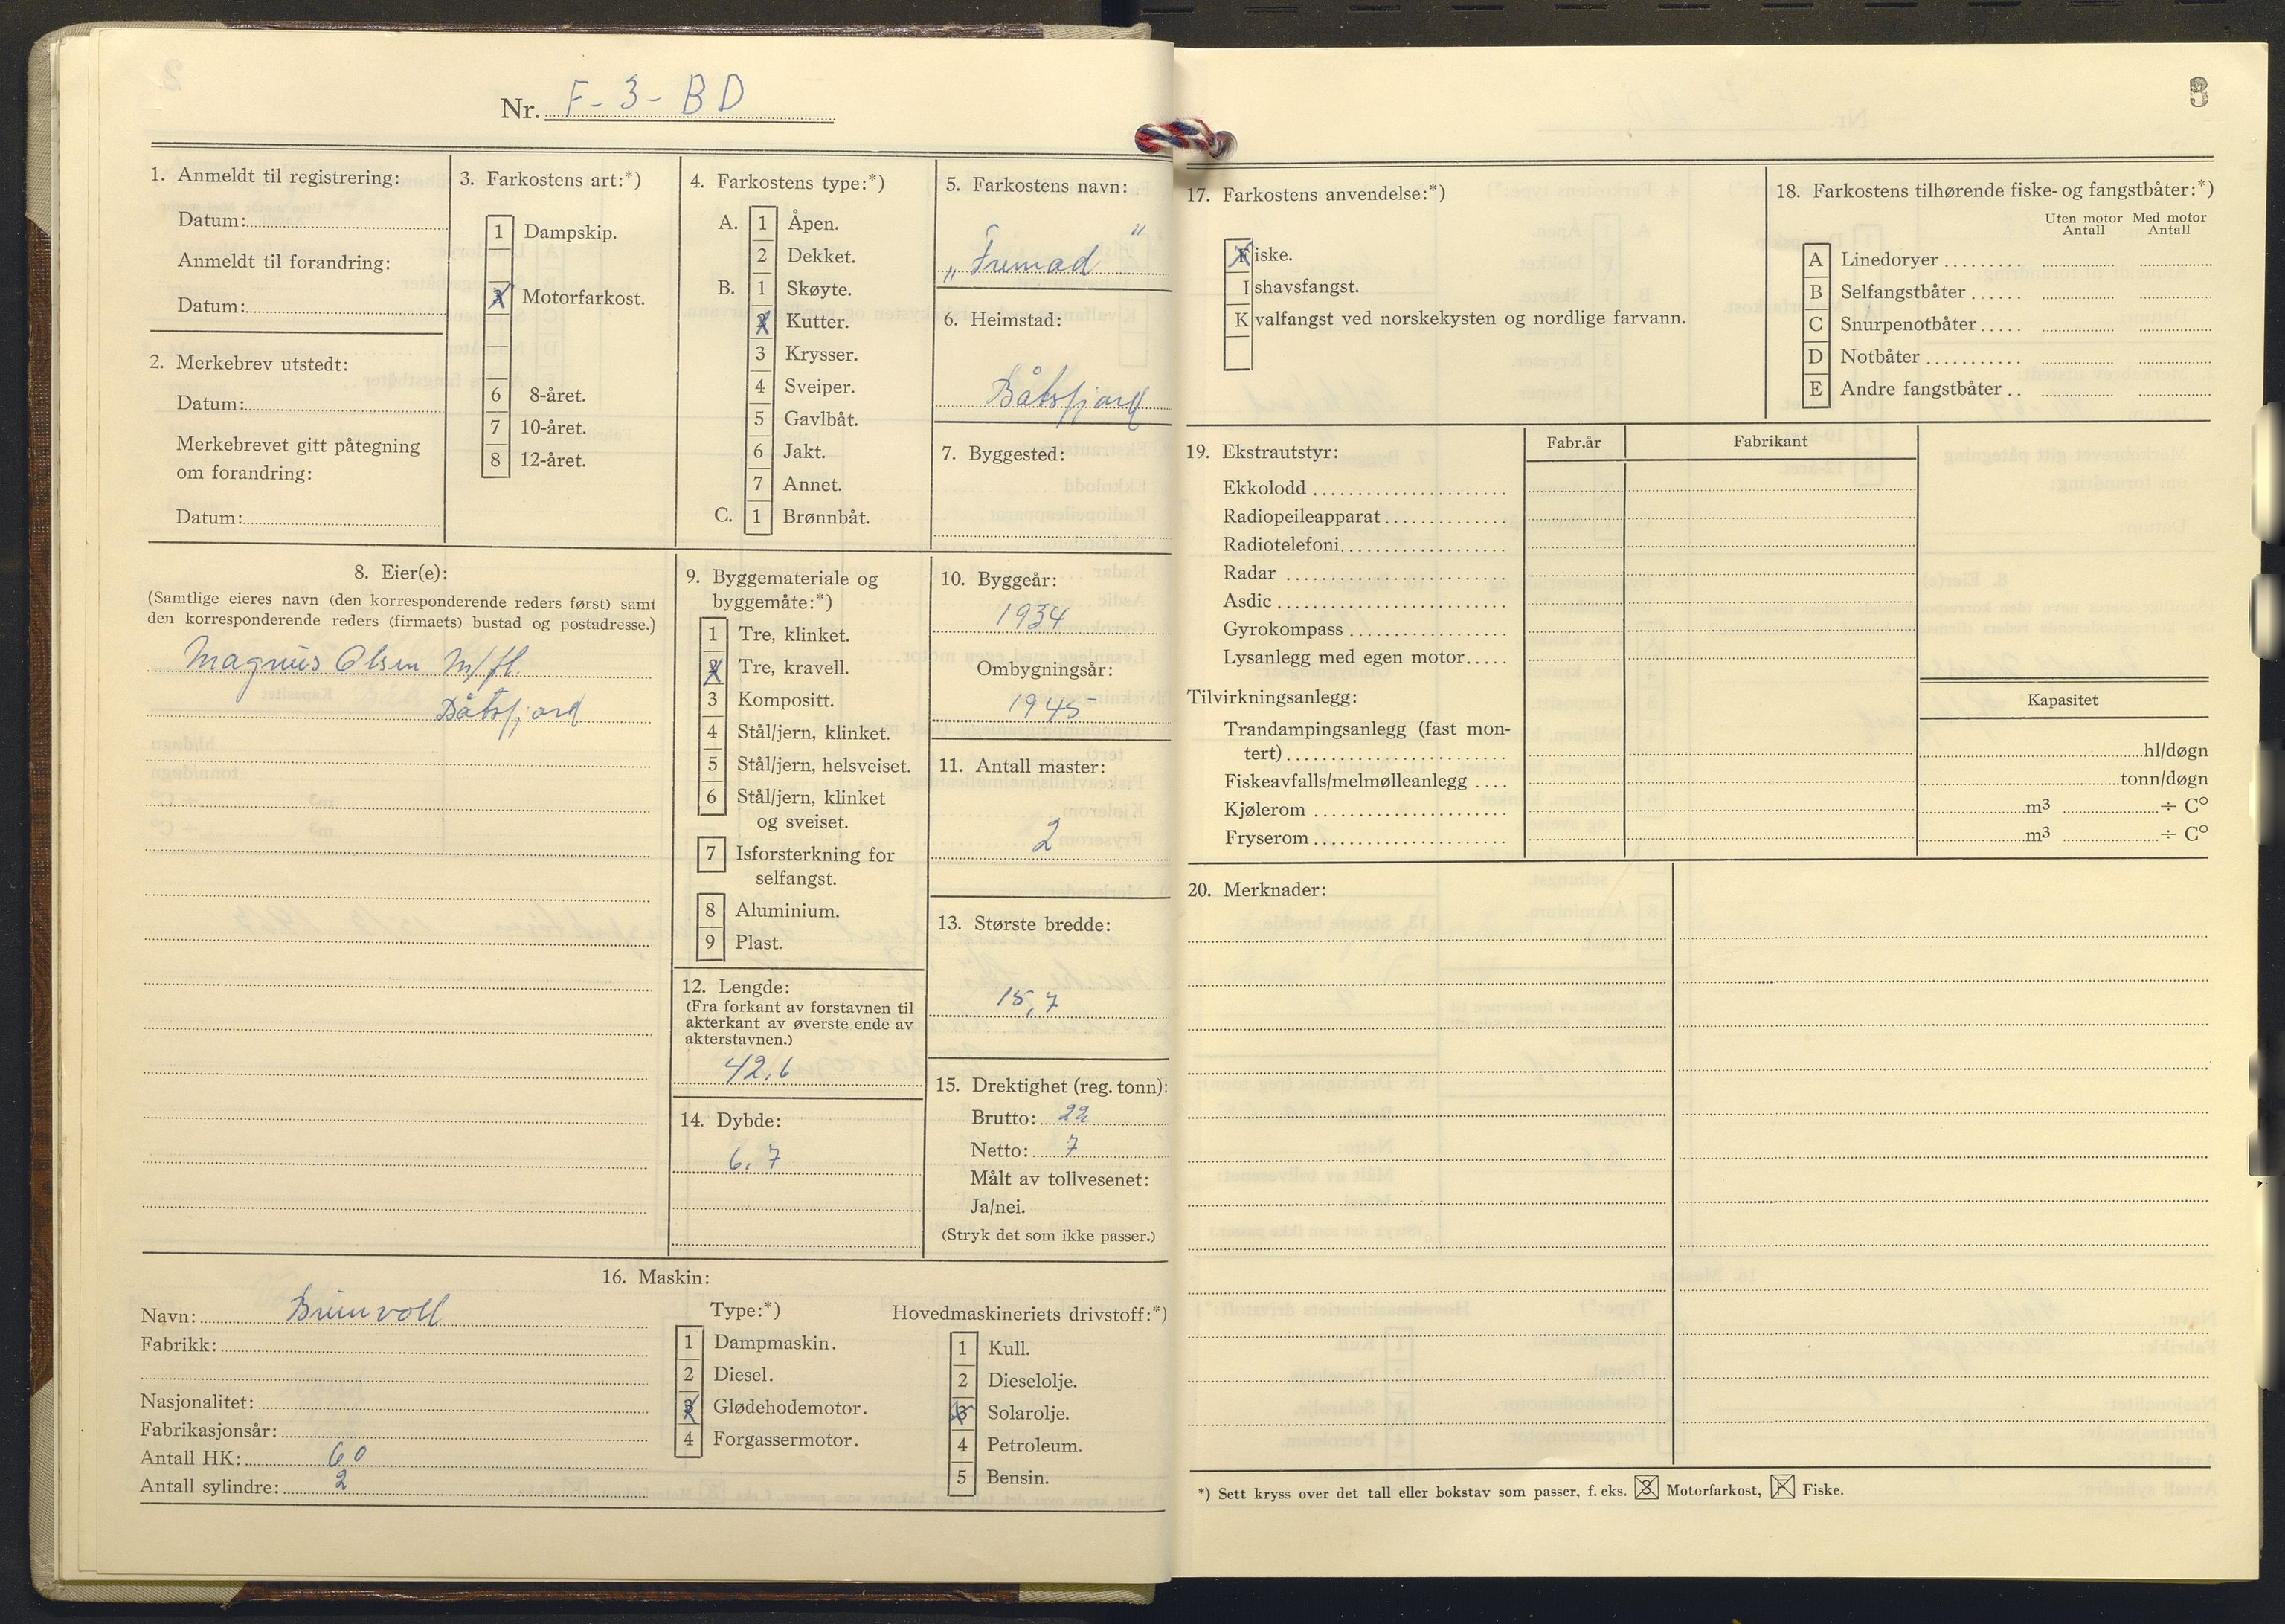 Nr. F-3-BD
1. Anmeldt til registrering:
Datum:
Anmeldt til forandring:
Datum:
2. Merkebrev utstedt:
Datum:
Merkebrevet gitt påtegning
om forandring:
Datum:
3. Farkostens art:*)
1 Dampskip.
3 Motorfarkost.
6 8-året.
7 10-året.
8 12-året.
4. Farkostens type:*)
A. 1 Åpen.
2 Dekket.
B. 1 Skøyte.
2 Kutter.
3 Krysser.
4 Sveiper.
5 Gavlbåt.
6 Jakt.
7 Annet.
C. 1 Brønnbåt.
5. Farkostens navn:
„Fremad"
6. Heimstad:
Båtsfjord
7. Byggested:
8. Eier(e):
(Samtlige eieres navn (den korresponderende reders først) samt
den korresponderende reders (firmaets) bustad og postadresse.)
Magnus Olsen m/fl.
Båtsfjord
9. Byggemateriale og
byggemåte:*)
1 Tre, klinket.
2 Tre, kravell.
3 Kompositt.
4 Stål/jern, klinket.
5 Stål/jern, helsveiset.
6 Stål/jern, klinket
og sveiset.
7 Isforsterkning for
selfangst.
8 Aluminium.
9 Plast.
10. Byggeår:
1934
Ombygningsår:
1945
11. Antall master:
2
12. Lengde:
(Fra forkant av forstavnen til
akterkant av øverste ende av
akterstavnen.)
42,6
13. Største bredde:
15,7
14. Dybde:
6,7
15. Drektighet (reg. tonn):
Brutto: 22
Netto: 7
Målt av tollvesenet:
Ja/nei.
(Stryk det som ikke passer.)
16. Maskin:
Navn: Brunvoll
Fabrikk:
Nasjonalitet:
Fabrikasjonsår:
Antall HK: 60
Antall sylindre: 2
Type:*)
1 Dampmaskin.
2 Diesel.
3 Glødehodemotor.
4 Forgassermotor.
Hovedmaskineriets drivstoff:*)
1 Kull.
2 Dieselolje.
3 Solarolje.
4 Petroleum.
5 Bensin.
3
17. Farkostens anvendelse:*)
Fiske.
Ishavsfangst.
Kvalfangst ved norskekysten og nordlige farvann.
18. Farkostens tilhørende fiske- og fangstbåter:*)
Uten motor Med motor
Antall Antall
A Linedoryer
B Selfangstbåter
C Snurpenotbåter
D Notbåter
E Andre fangstbåter
19. Ekstrautstyr: Fabr.år Fabrikant
Ekkolodd
Radiopeileapparat
Radiotelefoni
Radar
Asdic
Gyrokompass
Lysanlegg med egen motor
Tilvirkningsanlegg: Kapasitet
Trandampingsanlegg (fast mon-
tert) hl/døgn
Fiskeavfalls/melmølleanlegg tonn/døgn
Kjølerom m3 ÷ C°
Fryserom m3 ÷ C°
20. Merknader:
*) Sett kryss over det tall eller bokstav som passer, f. eks. 3 Motorfarkost, F Fiske.